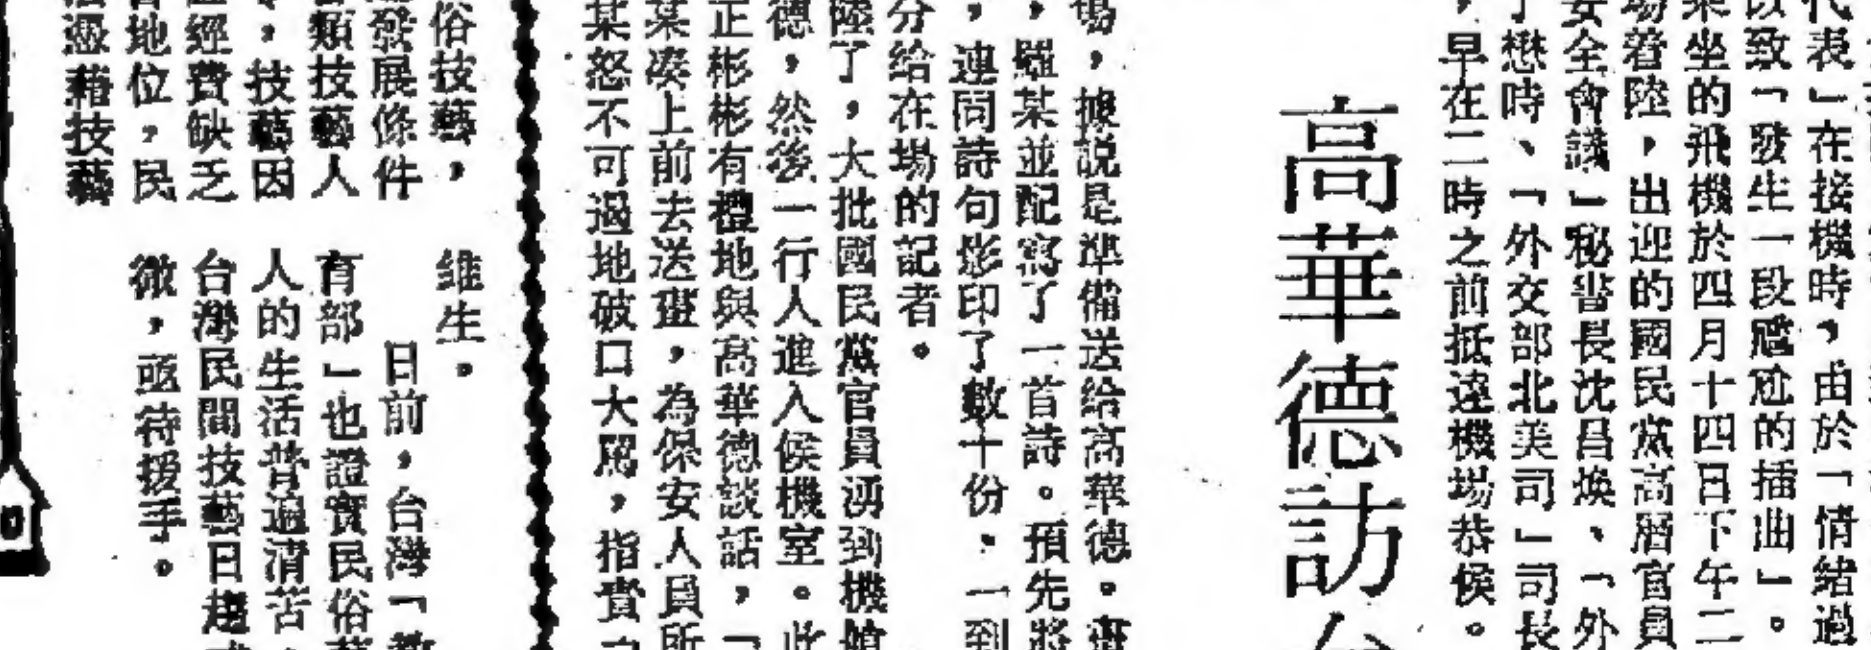 代表」在接機時，由於「情緒過
以致「發生一段尷尬的插曲」。
乘坐的飛機於四月十四日下午二
場着陸，出迎的國民黨高層官員
安全會議」秘書長沈昌煥、「外
丁懋時、「外交部北美司」司長
，早在二時之前抵達機場恭候。
高華德訪台
場，據説是準備送给高華德。事
，羅某並配寫了一首詩。預先將
，連同詩句影印了數十份，一到
分给在場的記者。
陸了，大批國民黨官員湧到機艙
德，然後一行人進入候機室。此
正彬彬有禮地與高華德談話，「
某凑上前去送畫，為保安人員所
某怒不可遏地破口大罵，指責「
俗技藝，
發展條件
類技藝人
，技藝因
經費缺乏
地位，民
憑藉技藝
維生。
日前，台灣「教
育部」也證實民俗藝
人的生活普遍清苦，
台灣民間技藝日趨式
微，亟待援手。